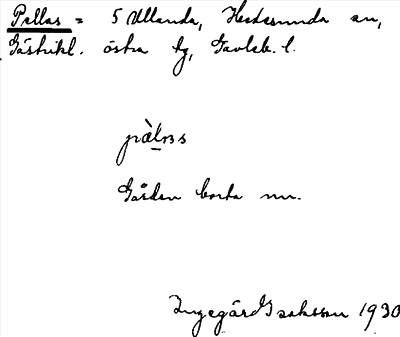 Pellas = 5 Ullanda, Hedesunda sn,
Gästrikl. östra tg, Gävleb. l.
pàl̠ɪss
Gården borta nu.
Ingegärd Isaksson 1930